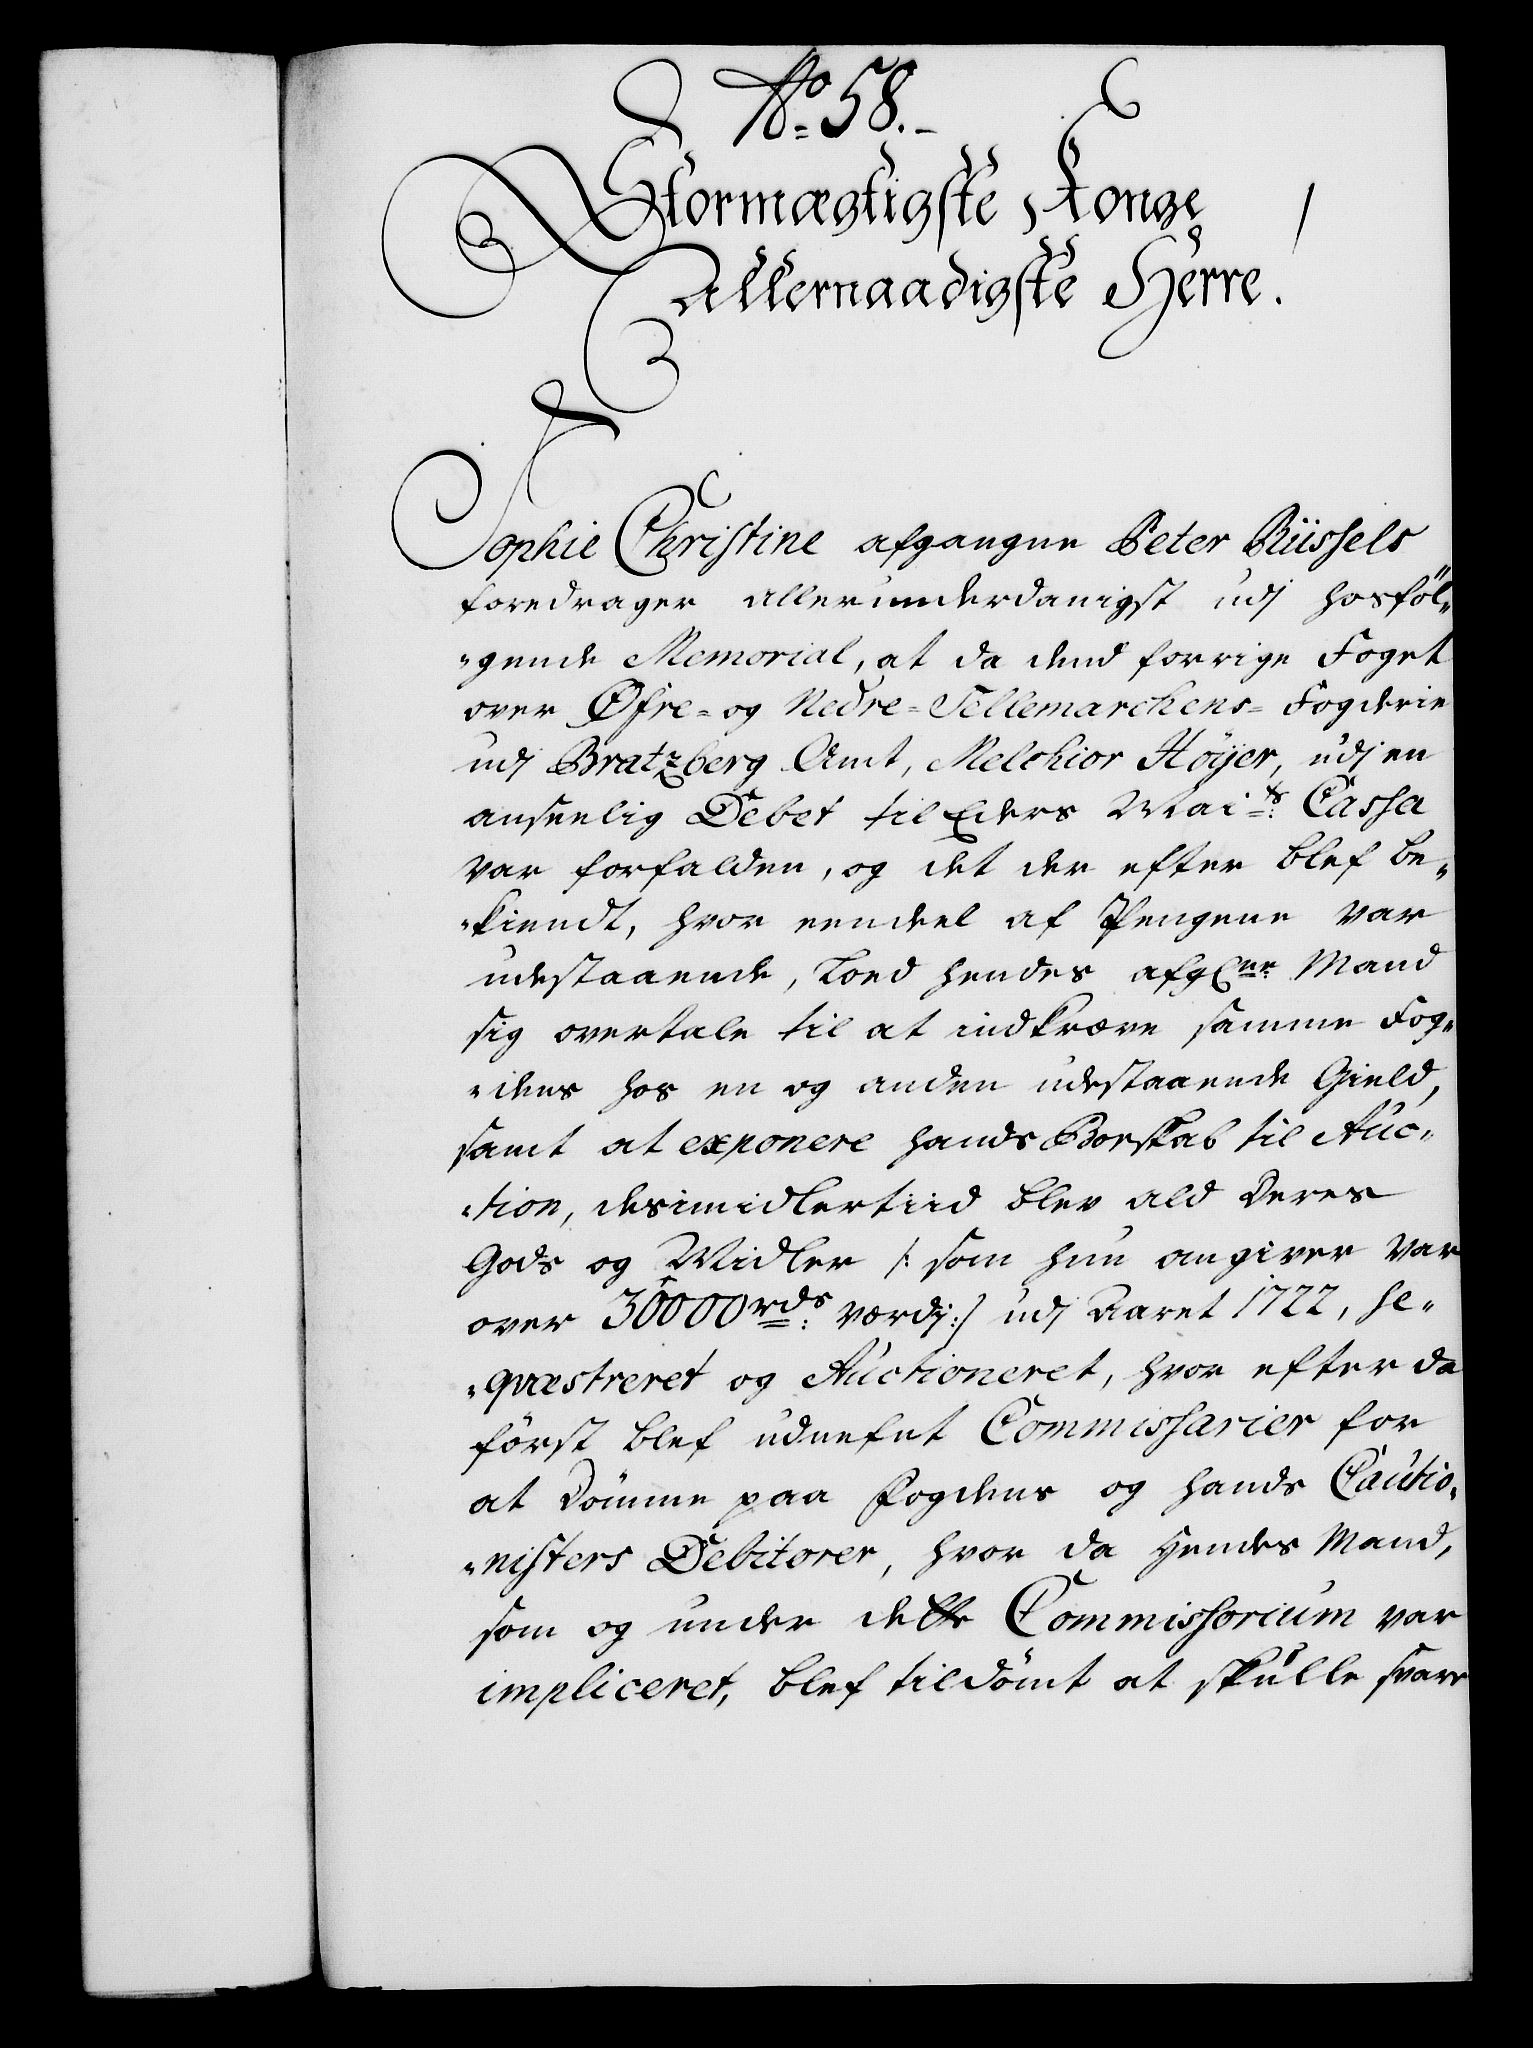 No: 58.
Stormægtigste Konge
Allernaadigste Herre!
Sophie Christine afgangne Peter Riissels
foredrager allerunderdanigst udj hosföl-
-gende Memorial, at da dend forrige Foget
over Øfre- og Nedre-Tellemarchens-Fogderie
udj Bratzberg Amt, Melchior Höyer, udj en
anseelig Debet til Eders Mai:ts Cassa
var forfalden, og det der efter blef be-
-kiendt, hvor eendeel af Pengene var
udestaaende, loed hendes afg:ne Mand
sig overtale til at indkræve samme Fog-
-dens hos en og anden udestaaende Gield,
samt at exponere hands Boeskab til Auc-
-tion, desimidlertiid blev ald Deres
Gods og Midler /: som hun angiver var
over 30000 rds: værdj :/ udj Aaret 1722, se-
-qvæstreret og Auctioneret, hvor efter da
först blef udnefnt Commissarier for
at Dömme paa Fogdens og hands Cautio-
-nisters Debitorer, hvor da hendes Mand,
som og under dette Commissorium var
impliceret, blef tildömt at skulle svare